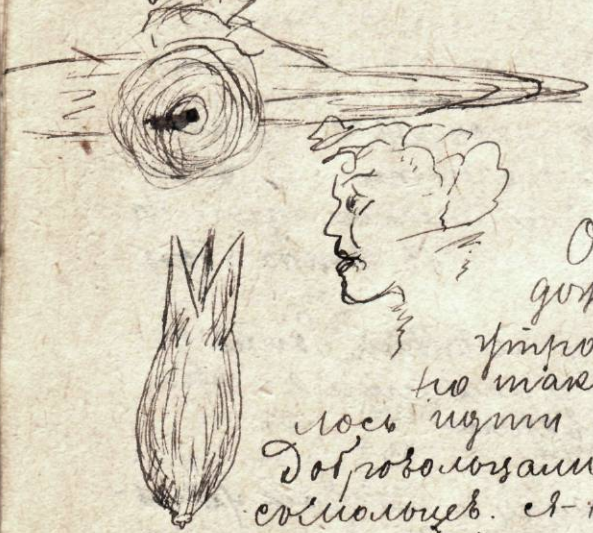 О
дож
утро
но так
лось идти
Добровольцами
сомольцев. Я-